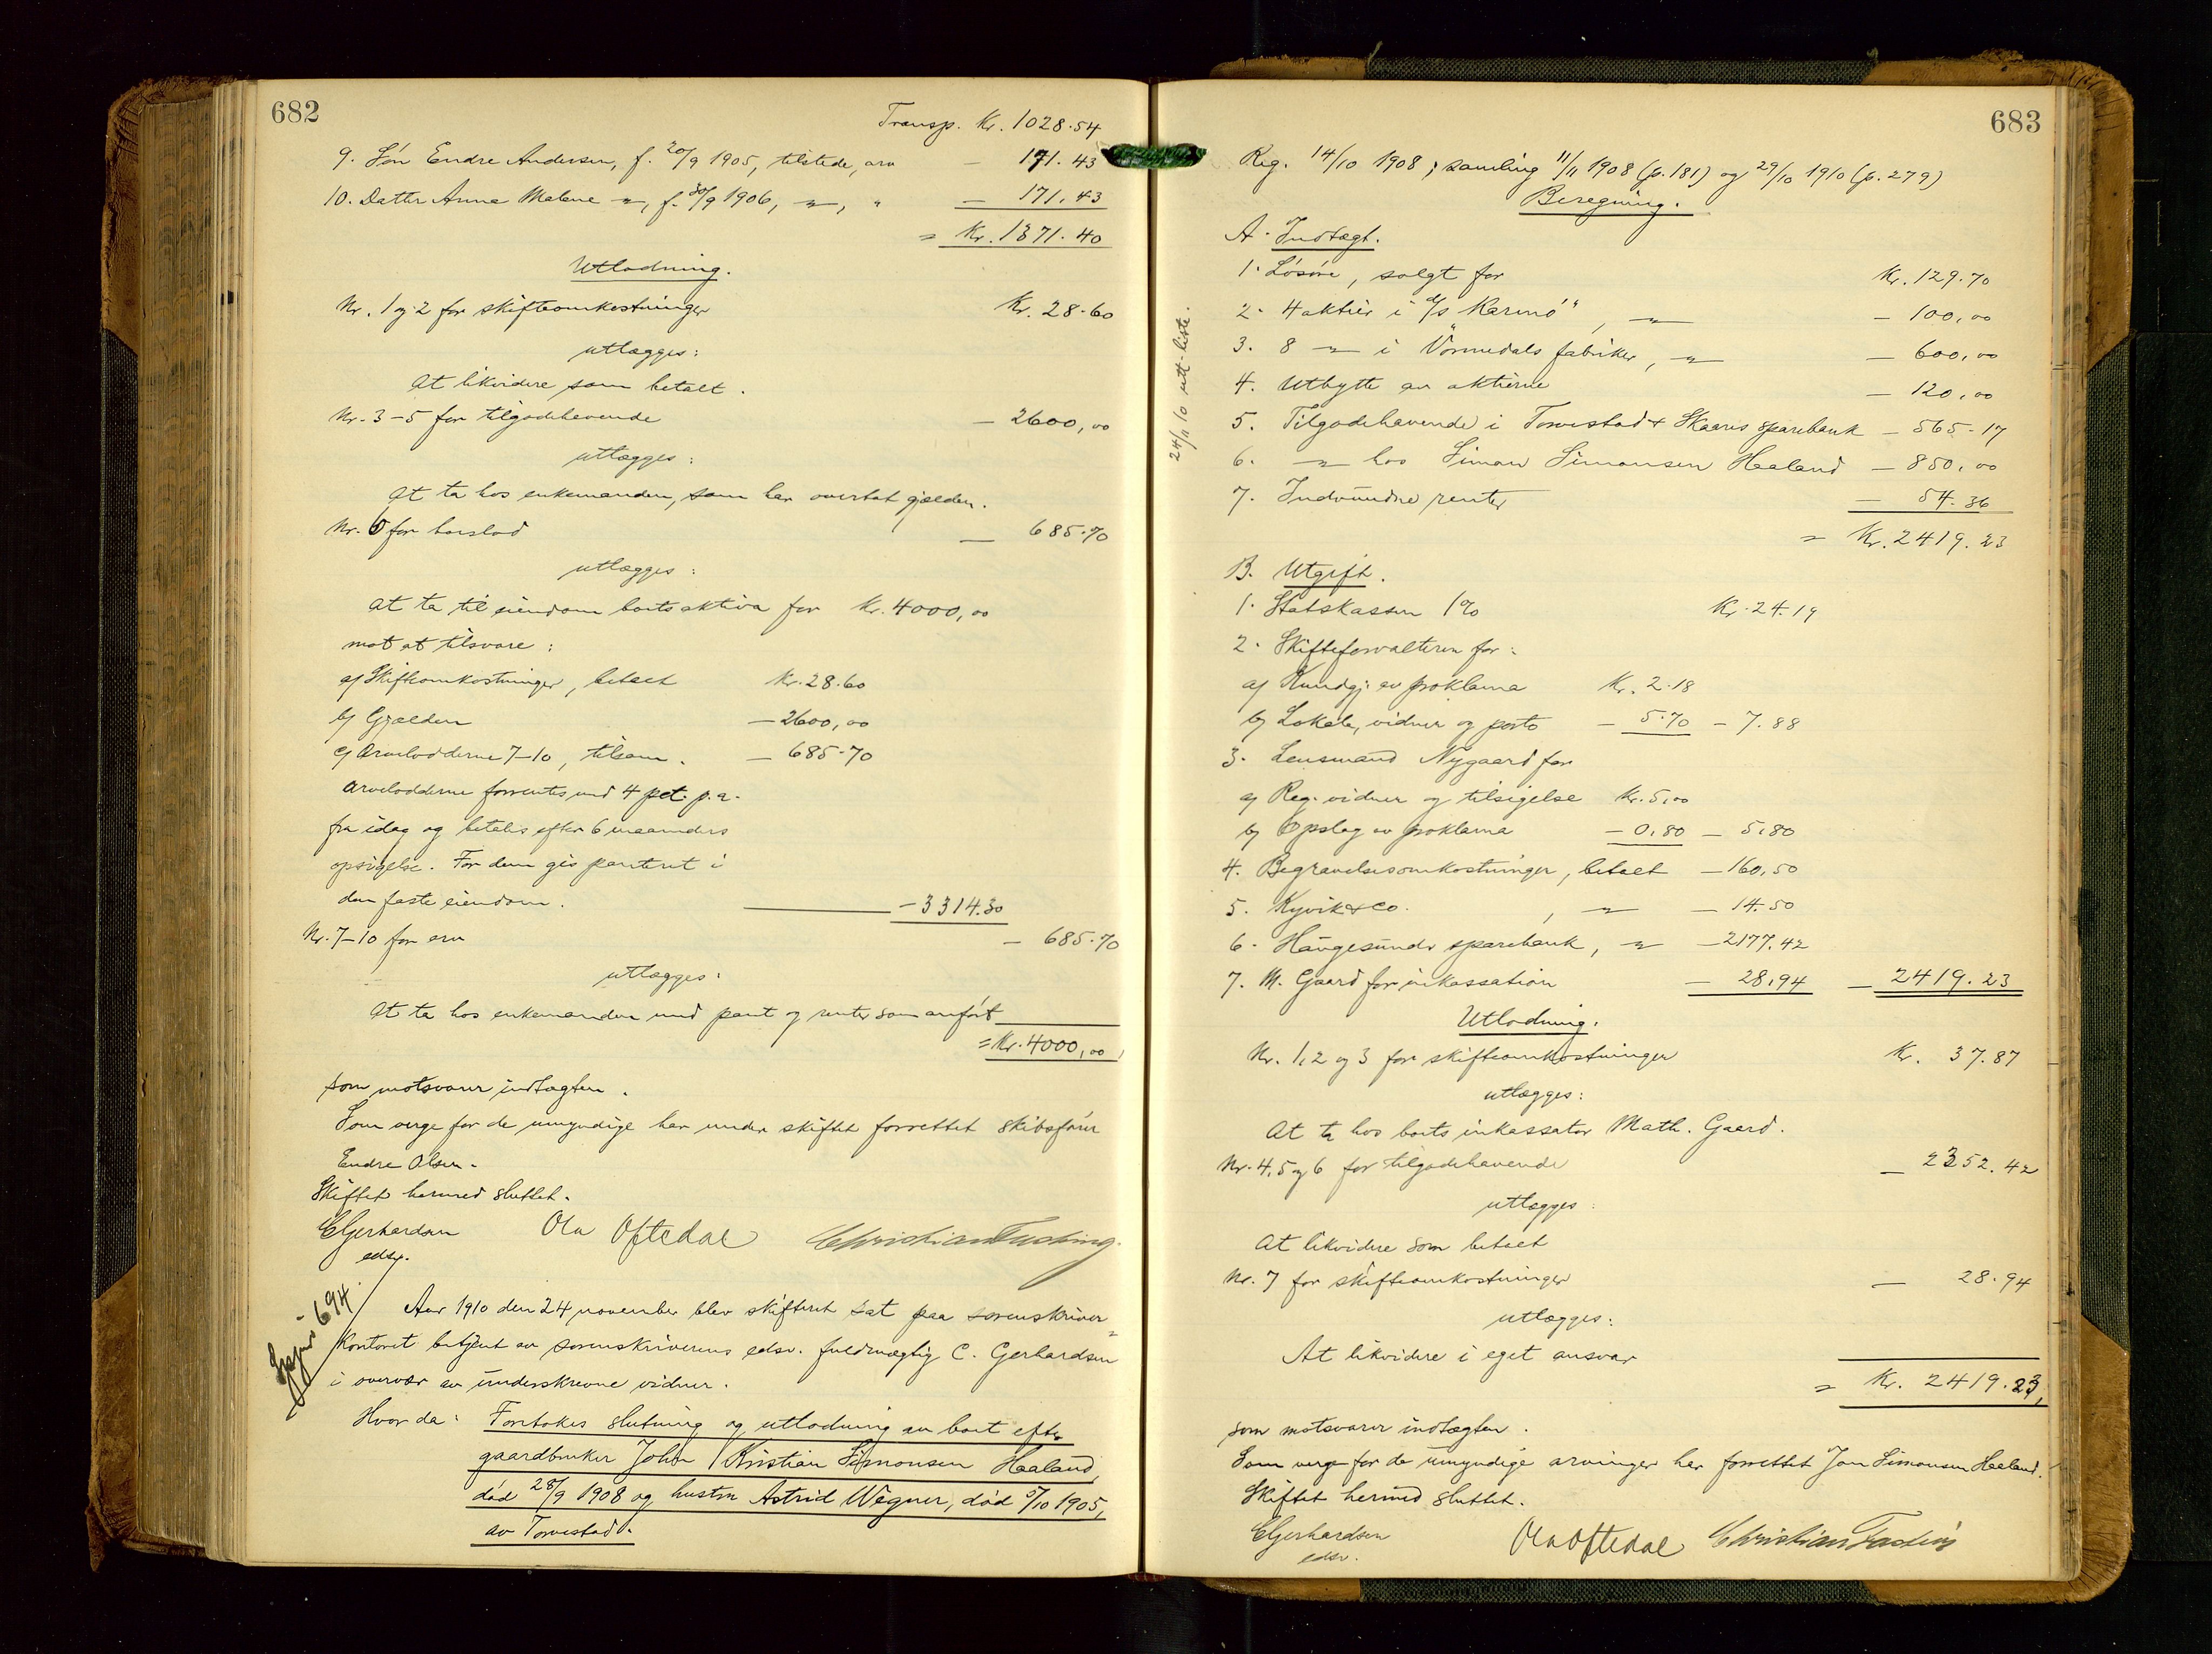 682
Transp. Kr. 1028.54
9. Søn Endre Andersen, f. 20/9 1905, tilstede, arv — 171.43
10. Datter Anna Malene —"—, f. 30/9 1906, —"—, " — 171.43
= Kr. 1371.40
Utlodning.
Nr. 1 og 2 for skifteomkostninger Kr. 28.60
utlægges:
At likvidere som betalt.
Nr. 3-5 for tilgodehavende — 2600,00
utlægges:
At ta hos enkemanden, som har overtat gjælden.
Nr. 6 for boeslod — 685.70
utlægges:
At ta til eiendom boets aktiva for Kr. 4000,00
mot at tilsvare:
a) Skifteomkostninger, betalt Kr. 28.60
b) Gjælden — 2600,00
c) Arvelodderne 7-10, tilsam. — 685.70
Arvelodderne forrentes med 4 pct. p.a.
fra idag og betales efter 6 maaneders
opsigelse. For dem gis panteret i
den faste eiendom. — 3314.30
Nr. 7-10 for arv — 685.70
utlægges:
At ta hos enkemanden med pant og renter som anført
= Kr. 4000,00,
som motsvarer indtægten.
Som verge for de umyndige har under skiftet forrettet skibsfører
Endre Olsen.
Skiftet hermed sluttet.
CGerhardsen Ola Oftedal Christian Fasting.
edsv.
694
Aar 1910 den 24 november blev skifteret sat paa sorenskriver=
kontoret betjent av sorenskriverens edsv. fuldmægtig C. Gerhardsen
i overvær av underskrevne vidner.
Hvor da: Foretokes slutning og utlodning av boet efter
gaardbruker John Kristian Simonsen Haaland,
død 28/9 1908 og hustru Astrid Wegner, død 5/10 1905,
av Torvestad.
683
Reg. 14/10 1908; samling 11/11 1908 (p. 181) og 29/10 1910 (p. 279)
Beregning.
24/11 10 utt. liste.
A. Indtægt.
1. Løsøre, solgt for Kr. 129.70
2. 4 aktier i d/s "Karmö", —"— — 100,00
3. 8 —"— i Vormedals fabriker, —"— — 600,00
4. Utbytte av aktierne — 120,00
5. Tilgodehavende i Torvestad & Skaares sparebank — 565.17
6. —"— hos Simon Simonsen Haaland — 850,00
7. Indvundne renter — 54.36
= Kr. 2419.23
B. Utgift.
1. Statskassen 1% Kr. 24.19
2. Skifteforvalteren for:
a) Kundgj. av proklama Kr. 2.18
b) Lokale, vidner og porto — 5.70 — 7.88
3. Lensmand Nygaard for
a) Reg. vidner og tilsigelse Kr. 5,00
b) Opslag av proklama — 0,80 — 5,80
4. Begravelsesomkostninger, betalt — 160,50
5. Kyvik & Co. , —"— — 14.50
6. Haugesunds sparebank, —"— — 2177.42
7. M. Gaard for inkassation — 28,94 — 2419.23
Utlodning.
Nr. 1, 2 og 3 for skifteomkostninger Kr. 37.87
utlægges:
At ta hos boets inkassator Math. Gaard.
Nr. 4, 5 og 6 for tilgodehavende — 2352.42
utlægges:
At likvidere som betalt
Nr. 7 for skifteomkostninger — 28.94
utlægges:
At likvidere i eget ansvar
= Kr. 2419.23,
som motsvarer indtægten.
Som verge for de umyndige arvinger har forrettet Jon Simonsen Haaland.
Skiftet hermed sluttet.
CGerhardsen Ola Oftedal Christian Fasting
edsv.